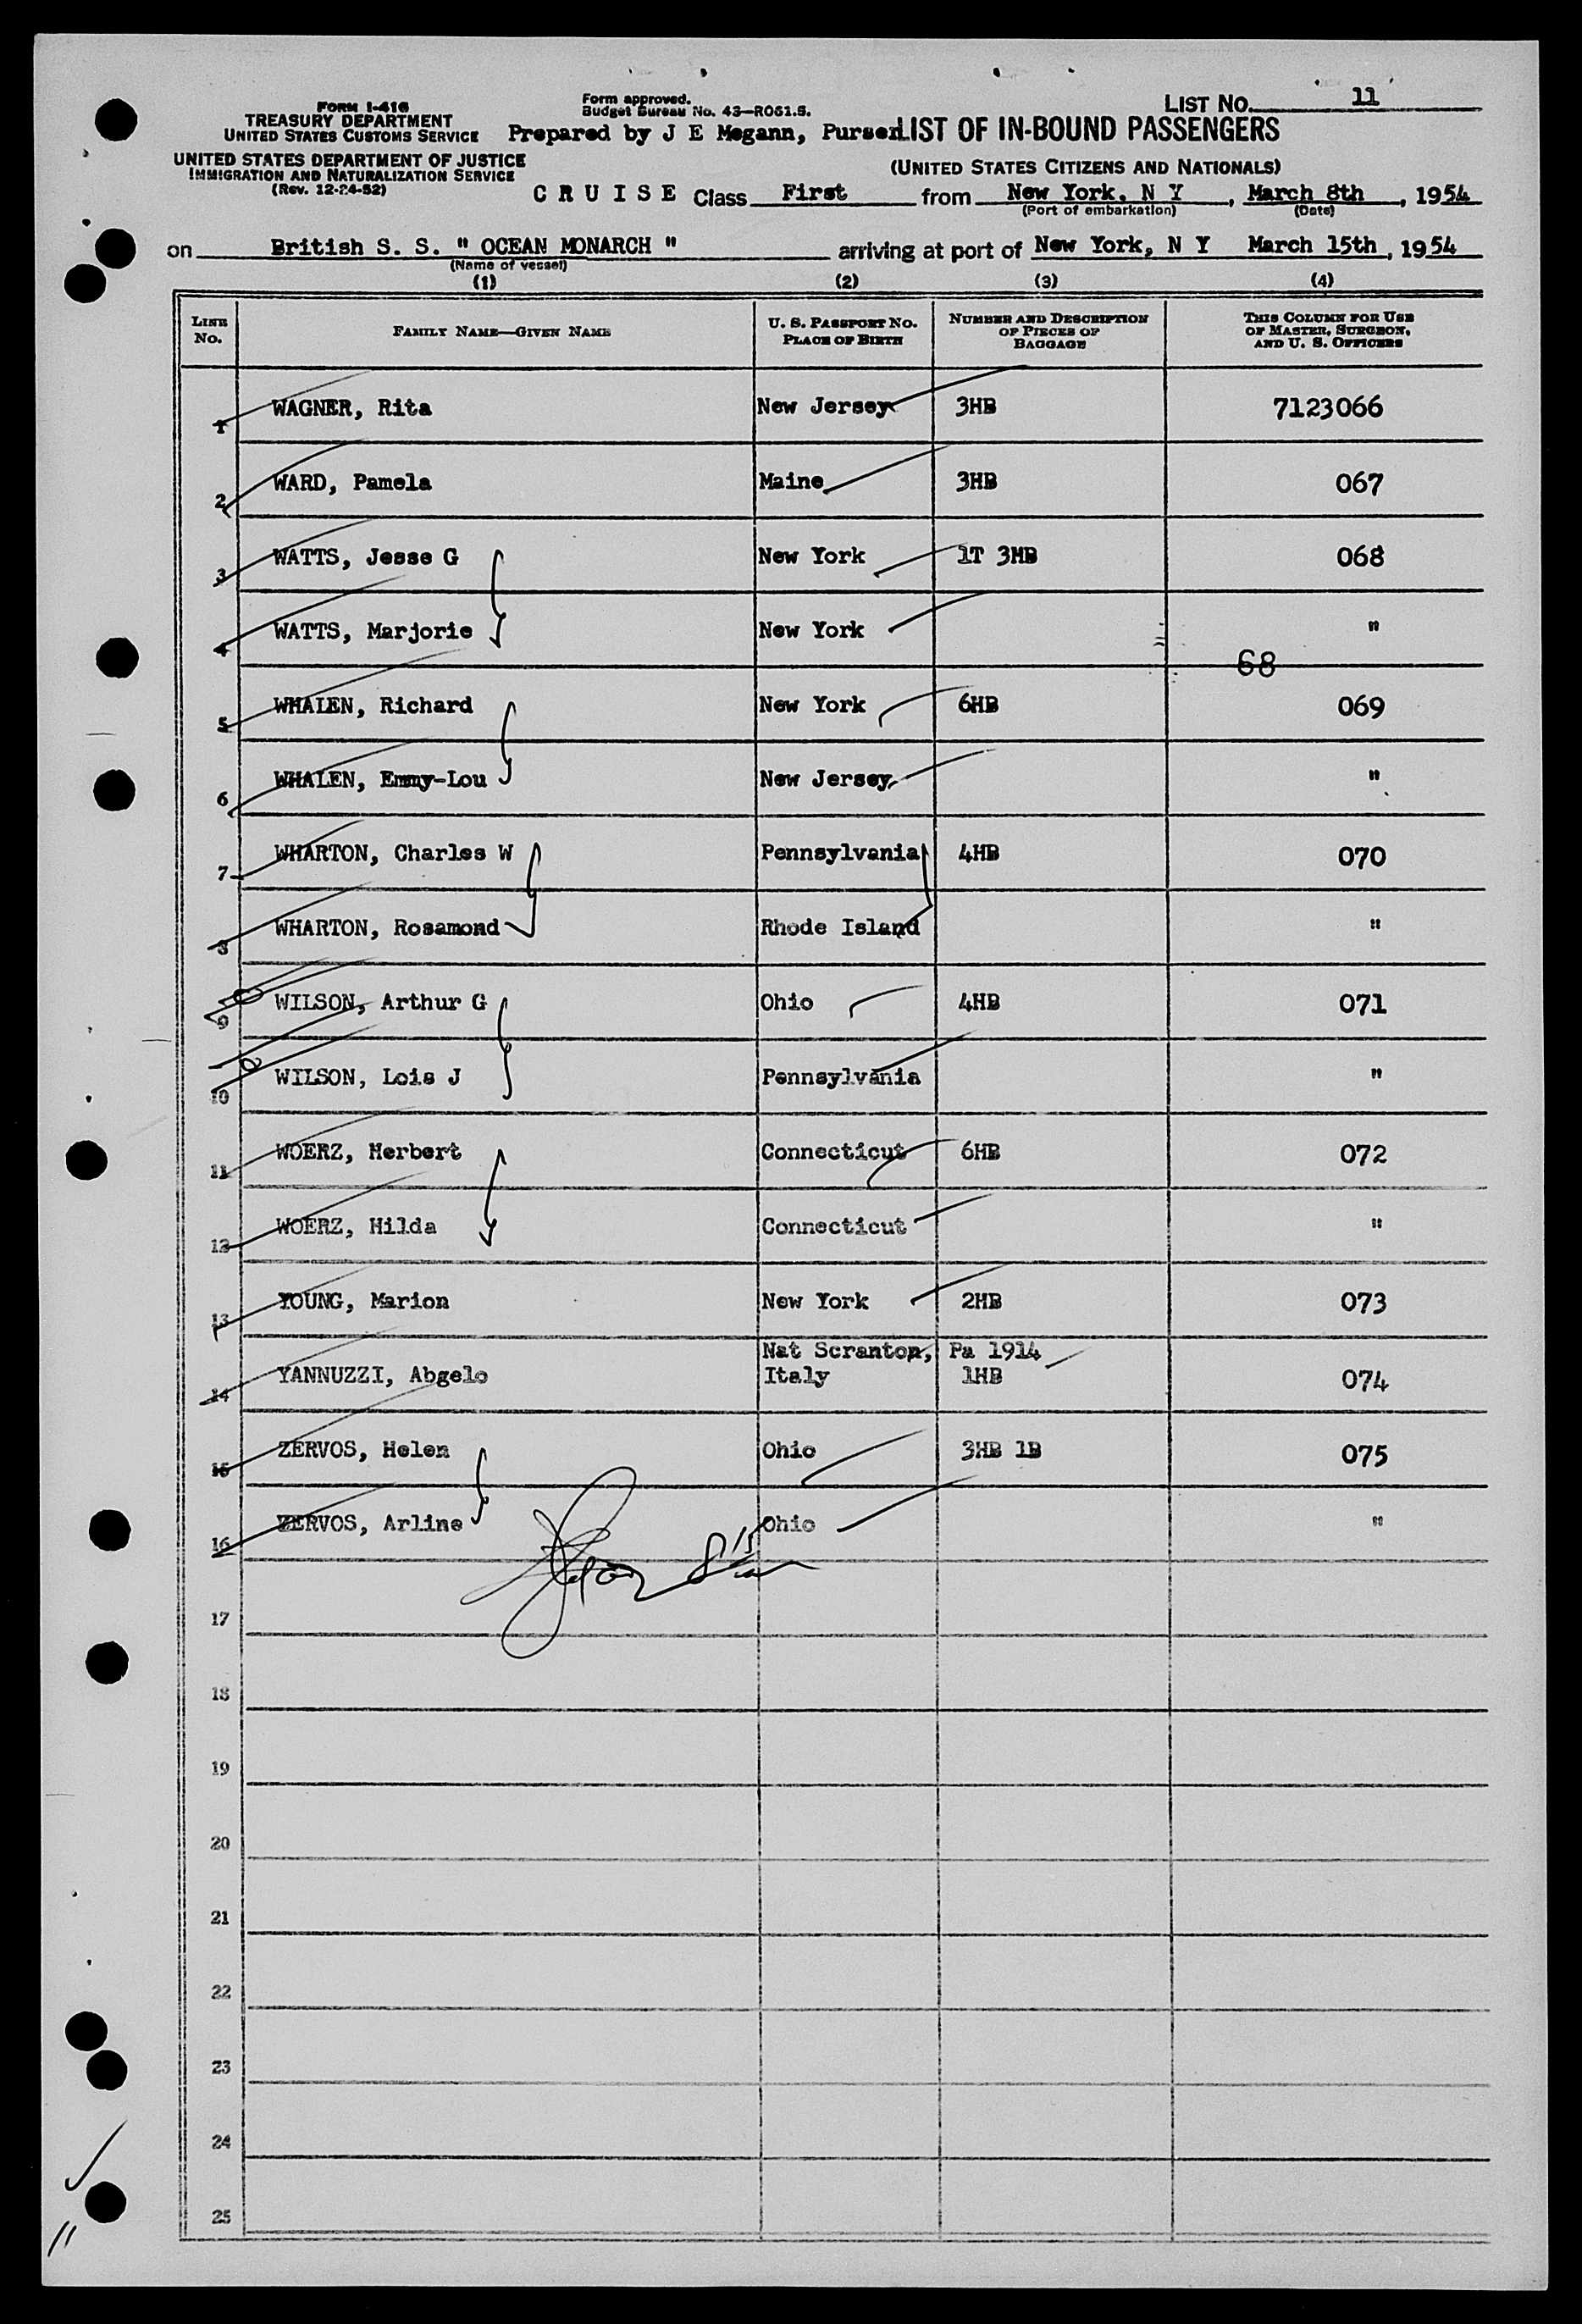 FORM I-416
TREASURY DEPARTMENT
UNITED STATES CUSTOMS SERVICE
UNITED STATES DEPARTMENT OF JUSTICE
IMMIGRATION AND NATURALIZATION SERVICE
(Rev. 12-24-52)
Form approved.
Budget Bureau No. 43—R061.5.
LIST NO. 11
Prepared by J E Megann, Purser
LIST OF IN-BOUND PASSENGERS
(UNITED STATES CITIZENS AND NATIONALS)
C R U I S E Class First from New York, N Y, March 8th, 1954
(Port of embarkation) (Date)
on British S. S. " OCEAN MONARCH " arriving at port of New York, N Y March 15th, 1954
(Name of vessel)
(1) (2) (3) (4)
LINE NO. FAMILY NAME—GIVEN NAME U. S. PASSPORT NO. PLACE OF BIRTH NUMBER AND DESCRIPTION OF PIECES OF BAGGAGE THIS COLUMN FOR USE OF MASTER, SURGEON, AND U. S. OFFICERS
1 WAGNER, Rita New Jersey 3HB 7123066
2 WARD, Pamela Maine 3HB 067
3 WATTS, Jesse G New York 1T 3HB 068
4 WATTS, Marjorie New York "
68
5 WHALEN, Richard New York 6HB 069
6 WHALEN, Emmy-Lou New Jersey "
7 WHARTON, Charles W Pennsylvania 4HB 070
8 WHARTON, Rosamond Rhode Island "
9 WILSON, Arthur G Ohio 4HB 071
10 WILSON, Lois J Pennsylvania "
11 WOERZ, Herbert Connecticut 6HB 072
12 WOERZ, Hilda Connecticut "
13 YOUNG, Marion New York 2HB 073
Nat Scranton, Pa 1914
14 YANNUZZI, Abgelo Italy 1HB 074
15 ZERVOS, Helen Ohio 3HB 1B 075
16 ZERVOS, Arline Ohio "
17
18
19
20
21
22
23
24
25
11